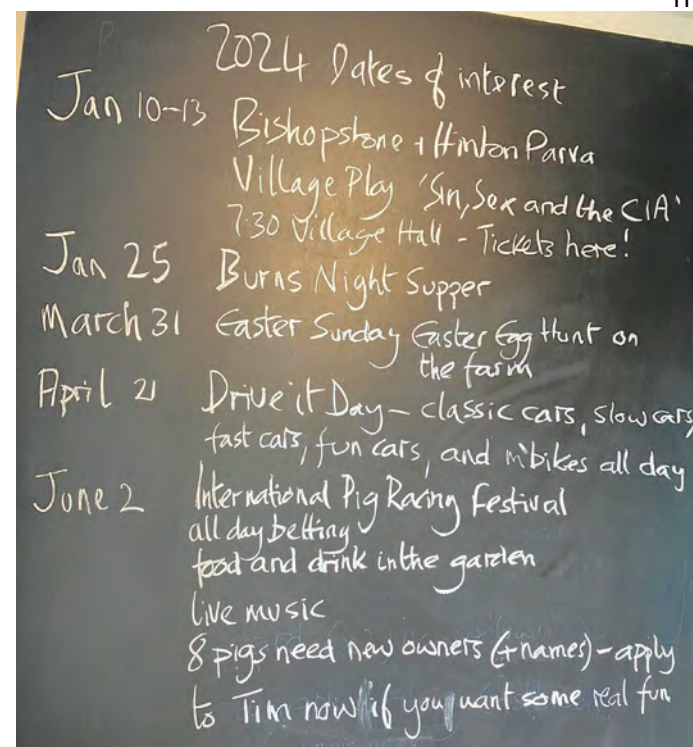 2024 Dates of interest
Jan 10-13 Bishopstone + Hinton Parva
Village Play 'Sin, Sex and the CIA'
7.30 Village Hall - Tickets here!
Jan 25 Burns Night Supper
March 31 Easter Sunday Easter Egg Hunt on
the farm
April 21 Drive it Day - classic cars, slow cars,
fast cars, fun cars, and m'bikes all day
June 2 International Pig Racing Festival
all day betting
food and drink in the garden
live music
8 pigs need new owners (+names) - apply
to Tim now if you want some real fun